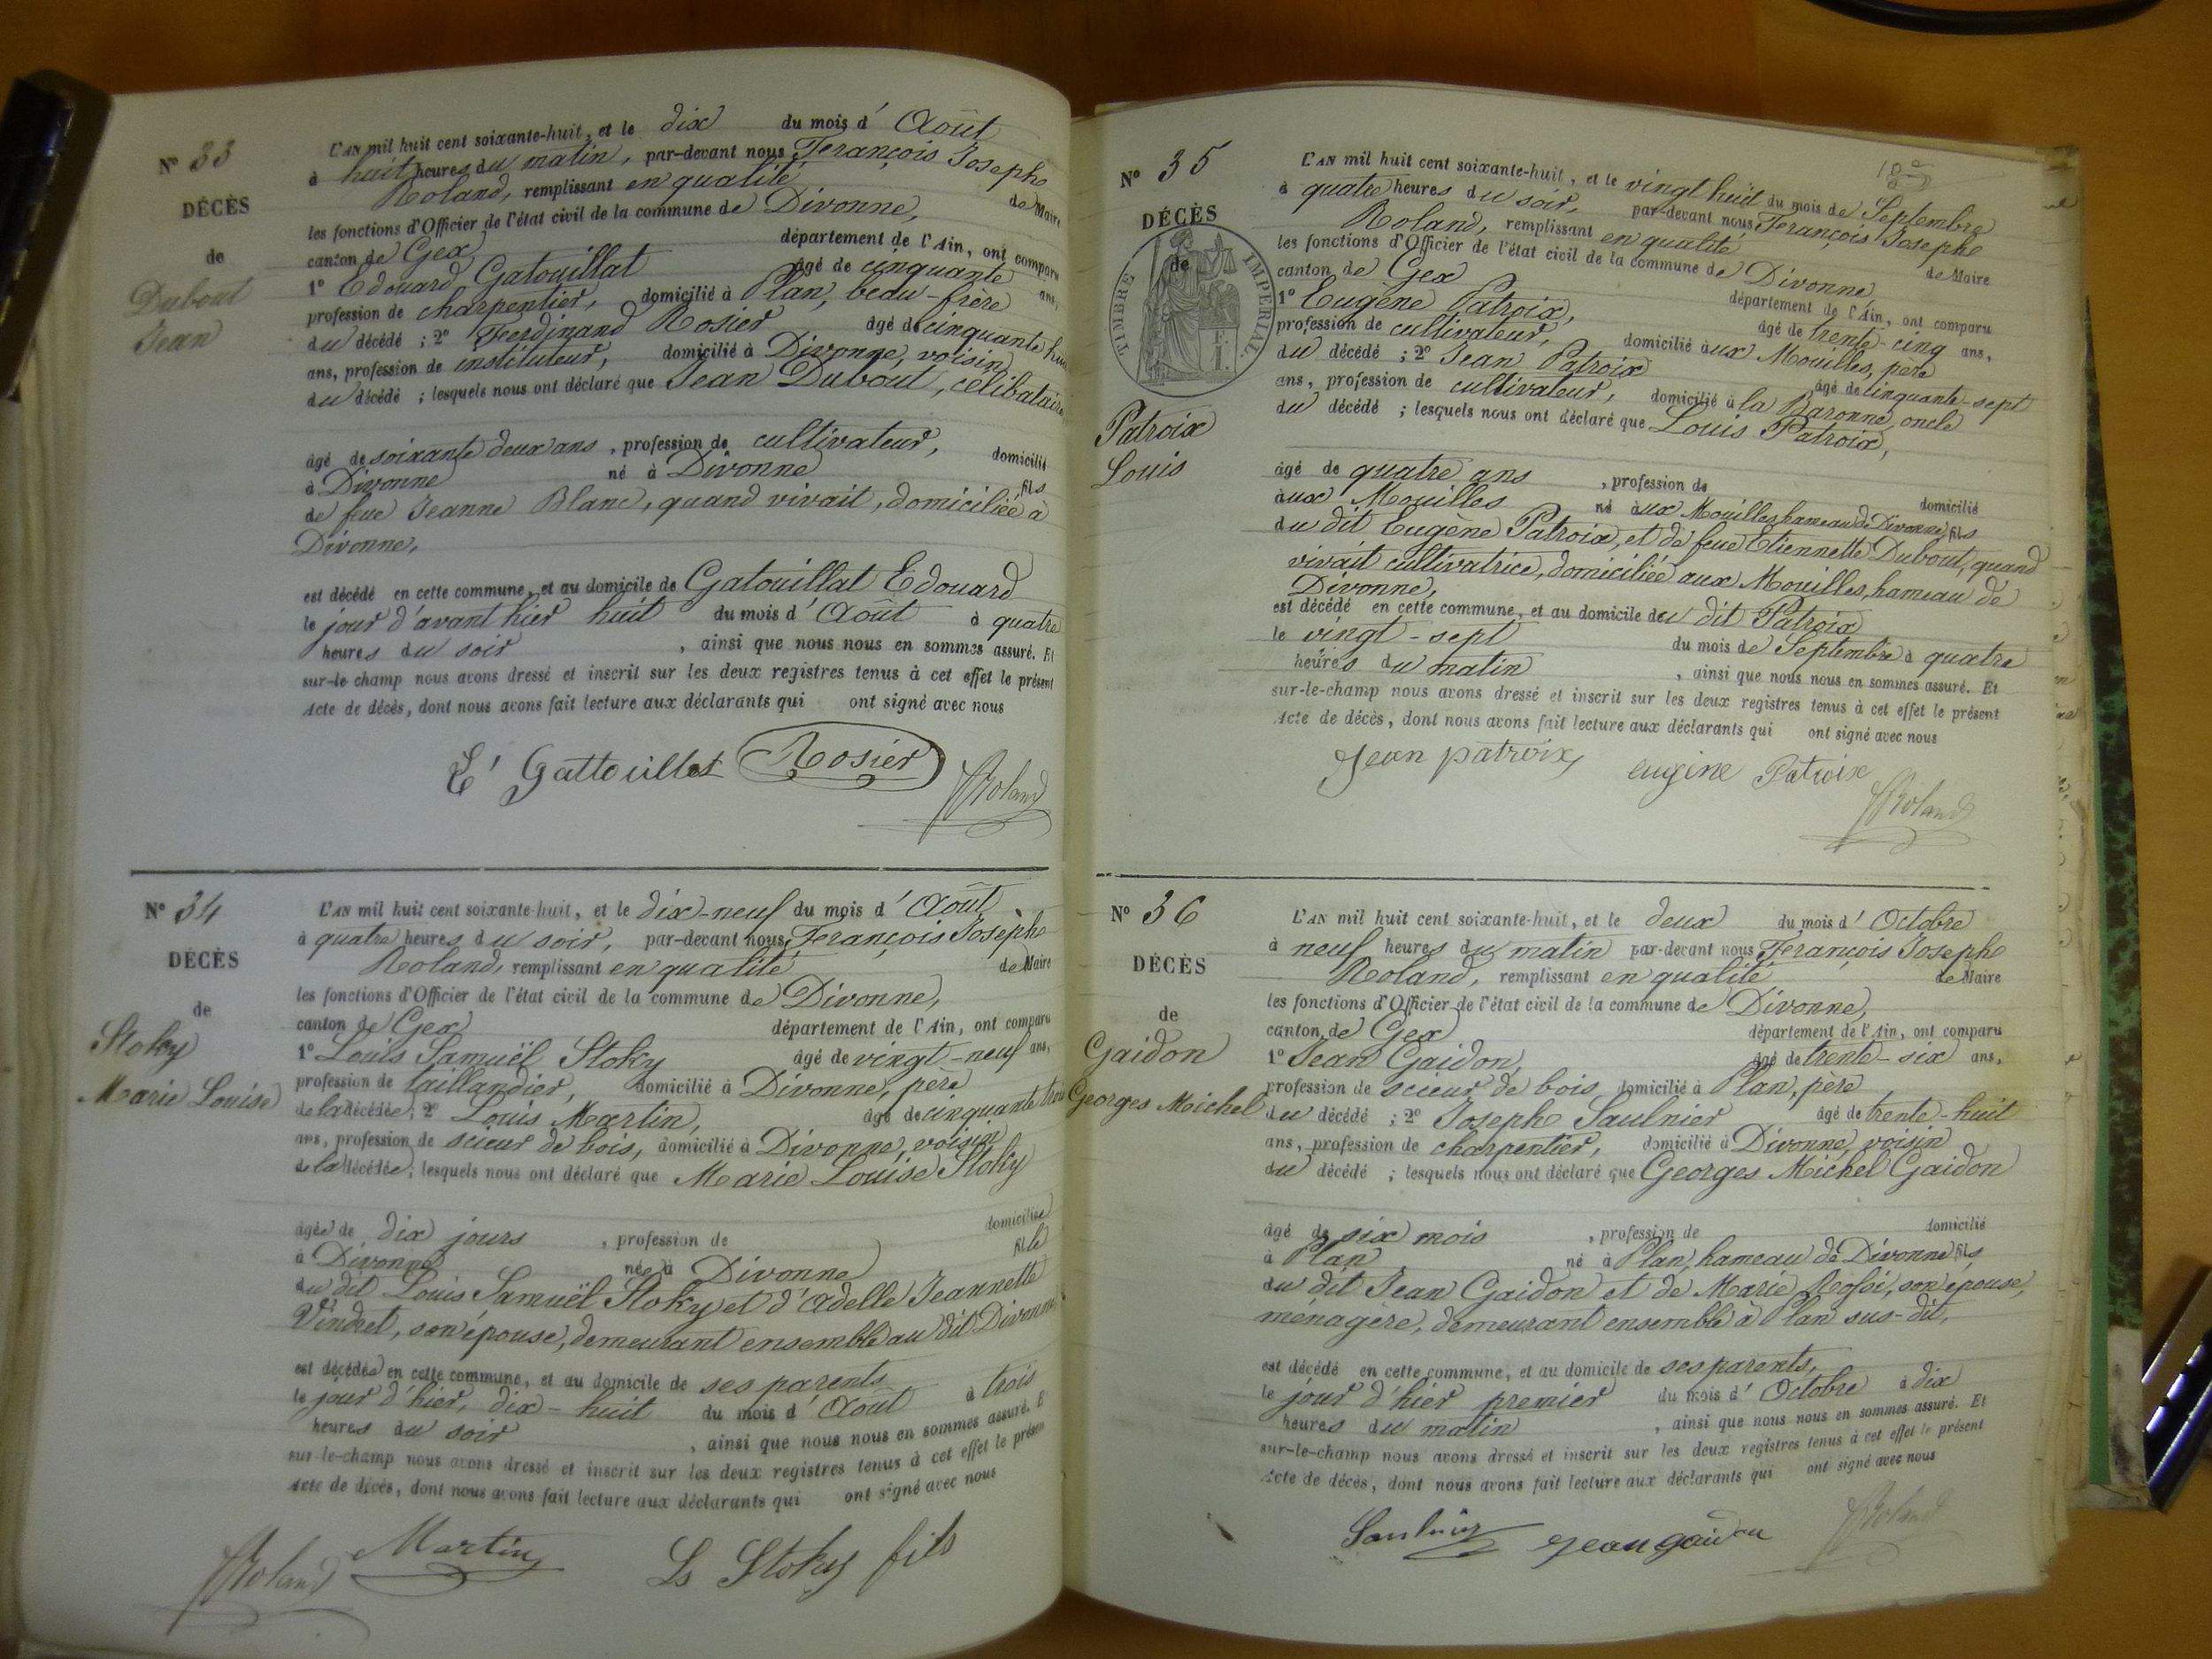 N° 33
DÉCÈS
de
Dubout
Jean
L'AN mil huit cent soixante-huit, et le dix du mois d'Août
à huit heures du matin, par-devant nous François Josephe
Roland, remplissant en qualité de Maire
les fonctions d'Officier de l'état civil de la commune de Divonne,
canton de Gex département de l'Ain, ont comparu
1° Edouard Gatouillat âgé de cinquante ans,
profession de charpentier, domicilié à Plan, beau-frère
du décédé ; 2° Ferdinand Rosier âgé de cinquante huit
ans, profession de instituteur, domicilié à Divonne, voisin
du décédé ; lesquels nous ont déclaré que Jean Dubout, célibataire
âgé de soixante deux ans, profession de cultivateur, domicilié
à Divonne né à Divonne fils
de feue Jeanne Blanc, quand vivait, domiciliée à
Divonne,
est décédé en cette commune, et au domicile de Gatouillat Edouard
le jour d'avant hier huit du mois d'Août à quatre
heures du soir, ainsi que nous nous en sommes assuré. Et
sur-le champ nous avons dressé et inscrit sur les deux registres tenus à cet effet le présent
Acte de décès, dont nous avons fait lecture aux déclarants qui ont signé avec nous
E' Gattouillat Rosier
JRoland
N° 34
DÉCÈS
de
Stoky
Marie Louise
L'AN mil huit cent soixante-huit, et le dix-neuf du mois d'Août
à quatre heures du soir, par-devant nous, François Josephe
Roland, remplissant en qualité de Maire
les fonctions d'Officier de l'état civil de la commune de Divonne,
canton de Gex département de l'Ain, ont comparu
1° Louis Samuël Stoky âgé de vingt-neuf ans,
profession de taillandier, domicilié à Divonne, père
de la décédée ; 2° Louis Martin, âgé de cinquante trois
ans, profession de scieur de bois, domicilié à Divonne, voisin
de la décédée ; lesquels nous ont déclaré que Marie Louise Stoky
âgée de dix jours, profession de domiciliée
à Divonne née à Divonne fille
du dit Louis Samuël Stoky et d'Adelle Jeannette
Vindret, son épouse, demeurant ensemble au dit Divonne
est décédée en cette commune, et au domicile de ses parents
le jour d'hier, dix-huit du mois d'Août à trois
heures du soir, ainsi que nous nous en sommes assuré. E
sur-le-champ nous avons dressé et inscrit sur les deux registres tenus à cet effet le présent
Acte de décès, dont nous avons fait lecture aux déclarants qui ont signé avec nous
JRoland Martin Ls Stoky fils
N° 35
DÉCÈS
de
TIMBRE IMPERIAL
Patroix
Louis
L'AN mil huit cent soixante-huit, et le vingt huit du mois de Septembre
à quatre heures du soir, par-devant nous François Josephe
Roland, remplissant en qualité de Maire
les fonctions d'Officier de l'état civil de la commune de Divonne
canton de Gex département de l'Ain, ont comparu
1° Eugène Patroix, âgé de trente-cinq ans,
profession de cultivateur, domicilié aux Mouilles, père
du décédé ; 2° Jean Patroix âgé de cinquante-sept
ans, profession de cultivateur, domicilié à la Baronne, oncle
du décédé ; lesquels nous ont déclaré que Louis Patroix,
âgé de quatre ans, profession de domicilié
aux Mouilles né aux Mouilles hameau de Divonne, fils
du dit Eugène Patroix, et de feue Etiennette Dubout, quand
vivait cultivatrice, domiciliée aux Mouilles, hameau de
Divonne,
est décédé en cette commune, et au domicile du dit Patroix
le vingt-sept du mois de Septembre à quatre
heures du matin, ainsi que nous nous en sommes assuré. Et
sur-le-champ nous avons dressé et inscrit sur les deux registres tenus à cet effet le présent
Acte de décès, dont nous avons fait lecture aux déclarants qui ont signé avec nous
Jean patroix eugène Patroix
JRoland
N° 36
DÉCÈS
de
Gaidon
Georges Michel
L'AN mil huit cent soixante-huit, et le deux du mois d'Octobre
à neuf heures du matin par-devant nous François Josephe
Roland, remplissant en qualité de Maire
les fonctions d'Officier de l'état civil de la commune de Divonne,
canton de Gex département de l'Ain, ont comparu
1° Jean Gaidon, âgé de trente-six ans,
profession de scieur de bois domicilié à Plan, père
du décédé ; 2° Josephe Saulnier âgé de trente-huit
ans, profession de charpentier, domicilié à Divonne, voisin
du décédé ; lesquels nous ont déclaré que Georges Michel Gaidon
âgé de six mois, profession de domicilié
à Plan né à Plan, hameau de Divonne fils
du dit Jean Gaidon et de Marie Rossi, son épouse,
ménagère, demeurant ensemble à Plan sus-dit,
est décédé en cette commune, et au domicile de ses parents,
le jour d'hier premier du mois d'Octobre à dix
heures du matin, ainsi que nous nous en sommes assuré. Et
sur-le-champ nous avons dressé et inscrit sur les deux registres tenus à cet effet le présent
Acte de décès, dont nous avons fait lecture aux déclarants qui ont signé avec nous
Saulnier jean gaidon JRoland